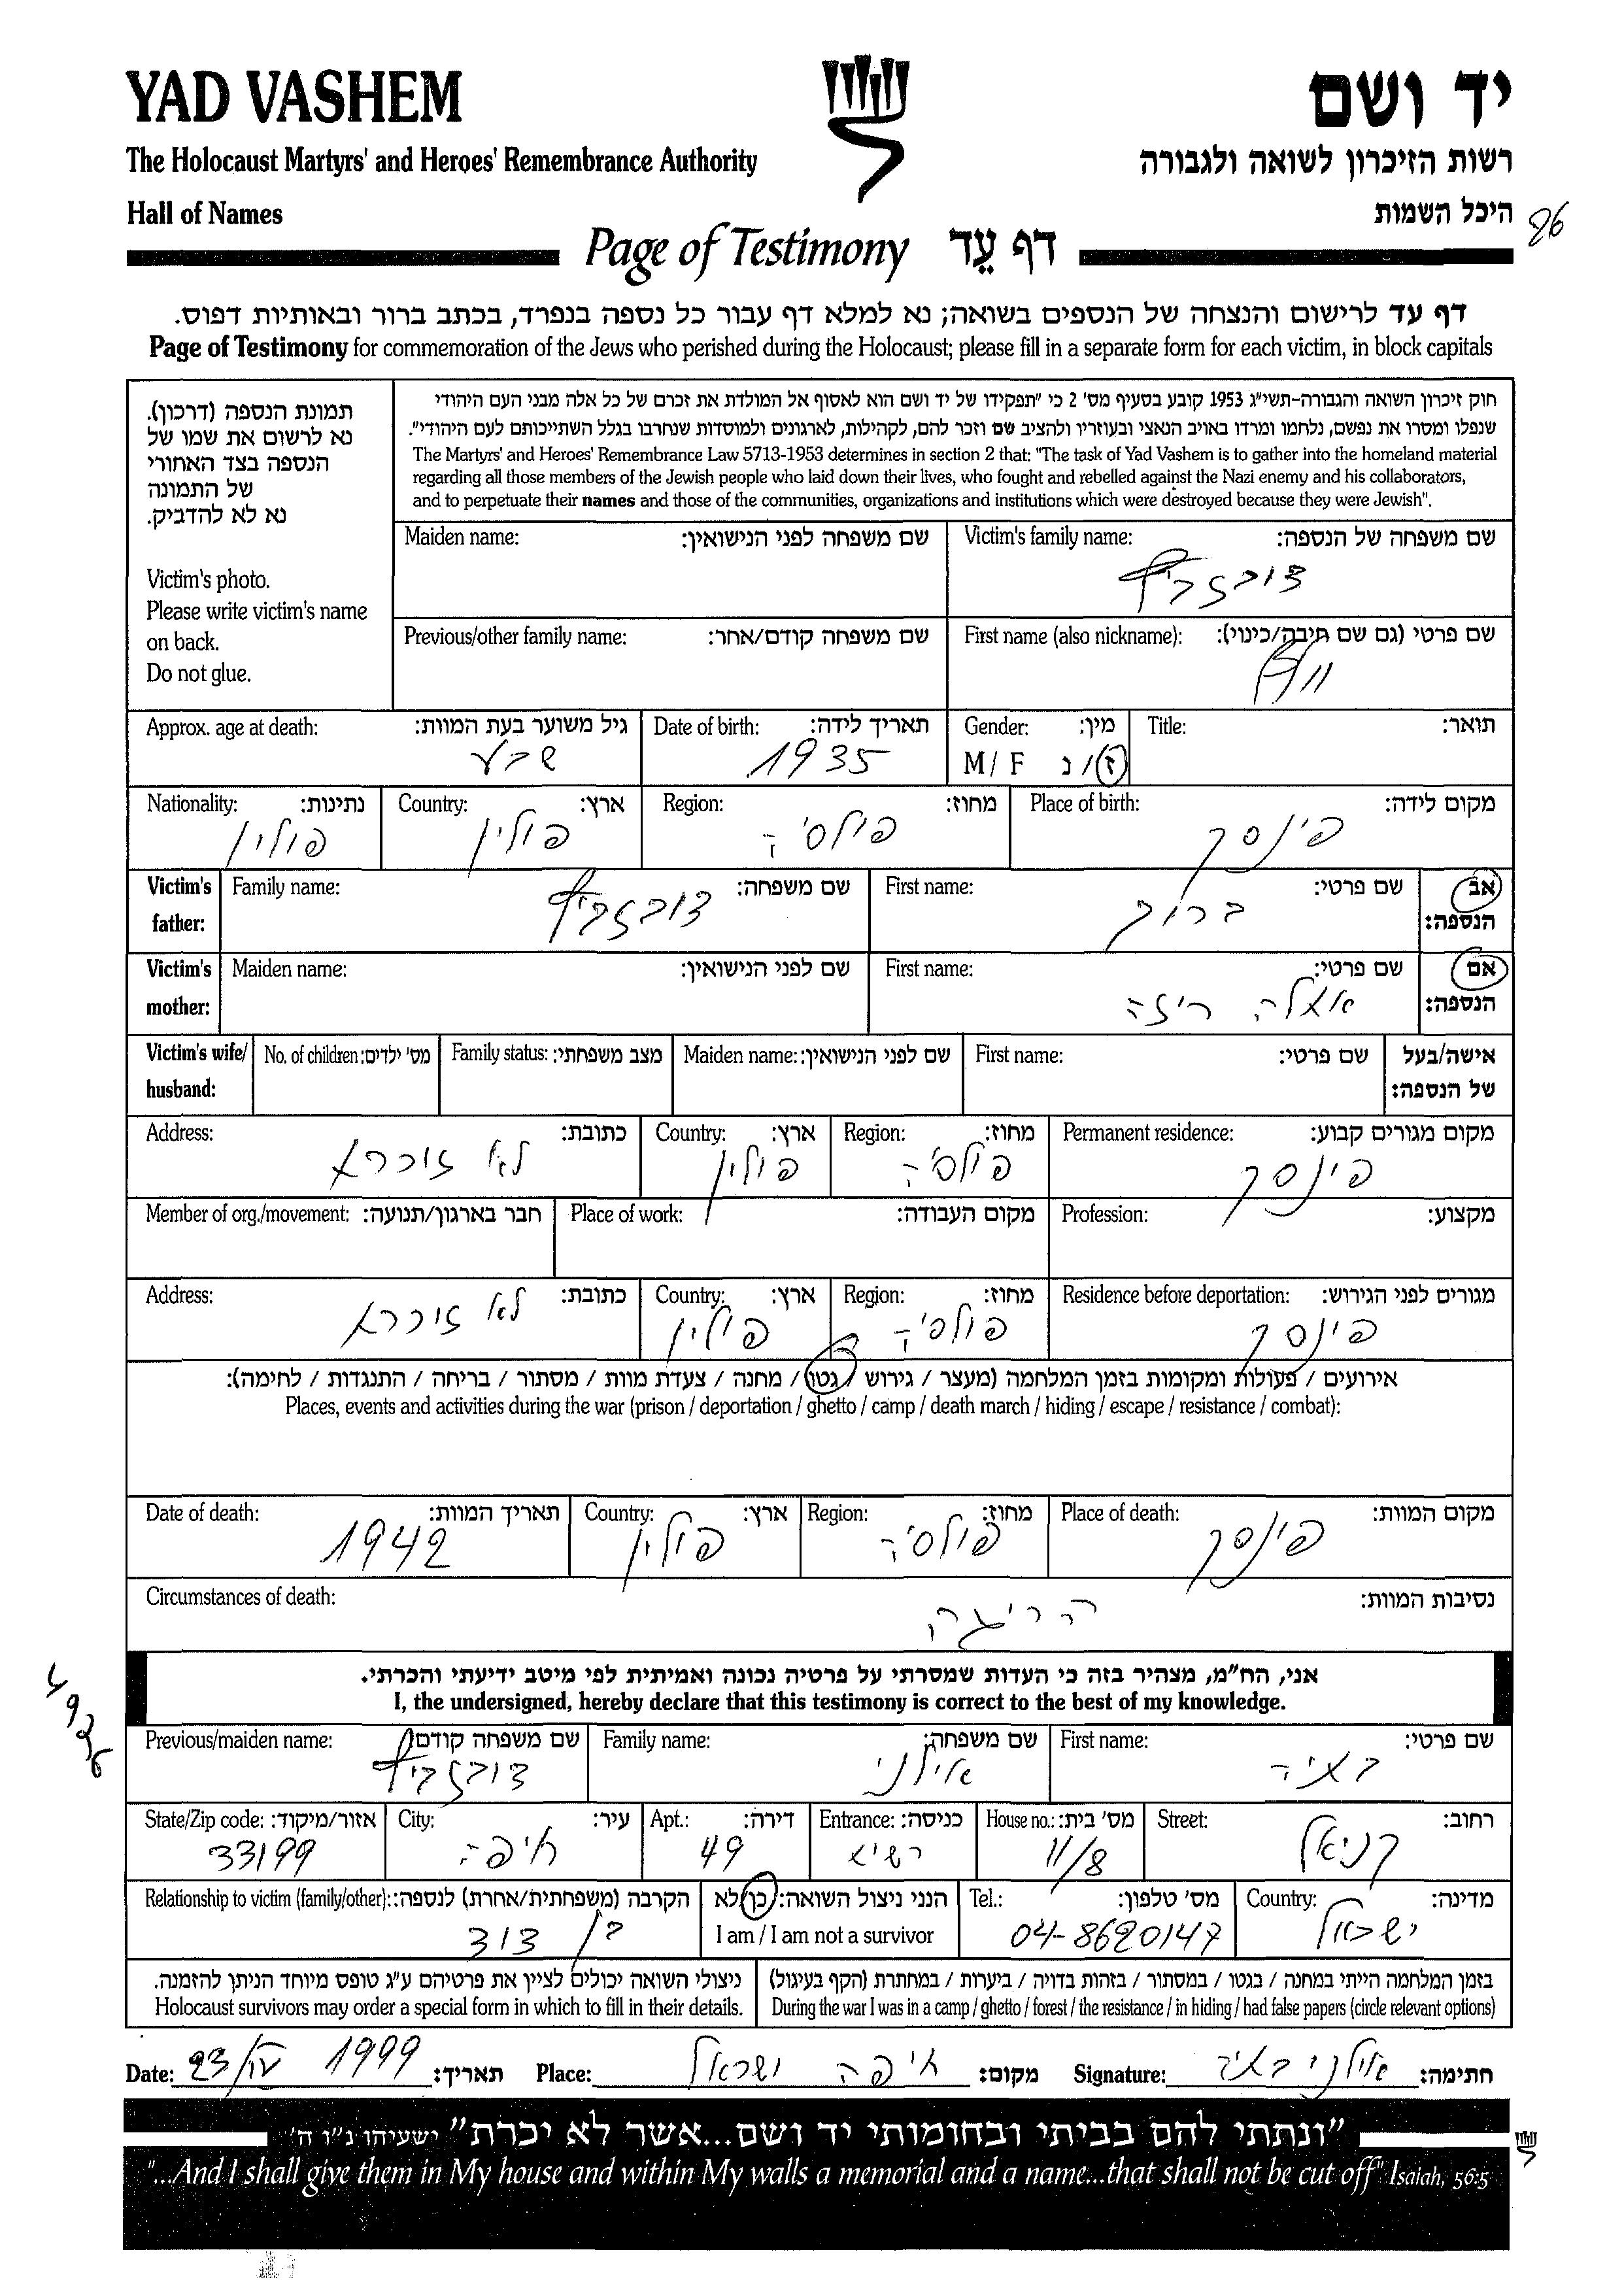 YAD VASHEM
יד ושם
The Holocaust Martyrs' and Heroes' Remembrance Authority
רשות הזיכרון לשואה ולגבורה
Hall of Names
היכל השמות
Page of Testimony דף עֵד
דף עד לרישום והנצחה של הנספים בשואה; נא למלא דף עבור כל נספה בנפרד, בכתב ברור ובאותיות דפוס.
Page of Testimony for commemoration of the Jews who perished during the Holocaust; please fill in a separate form for each victim, in block capitals
תמונת הנספה (דרכון).
נא לרשום את שמו של
הנספה בצד האחורי
של התמונה
נא לא להדביק.
Victim's photo.
Please write victim's name
on back.
Do not glue.
חוק זיכרון השואה והגבורה-תשי"ג 1953 קובע בסעיף מס' 2 כי "תפקידו של יד ושם הוא לאסוף אל המולדת את זכרם של כל אלה מבני העם היהודי
שנפלו ומסרו את נפשם, נלחמו ומרדו באויב הנאצי ובעוזריו ולהציב שם וזכר להם, לקהילות, לארגונים ולמוסדות שנחרבו בגלל השתייכותם לעם היהודי".
The Martyrs' and Heroes' Remembrance Law 5713-1953 determines in section 2 that: "The task of Yad Vashem is to gather into the homeland material
regarding all those members of the Jewish people who laid down their lives, who fought and rebelled against the Nazi enemy and his collaborators,
and to perpetuate their names and those of the communities, organizations and institutions which were destroyed because they were Jewish".
Victim's family name: שם משפחה של הנספה:
Maiden name: שם משפחה לפני הנישואין:
First name (also nickname): שם פרטי (גם שם חיבה/כינוי):
Previous/other family name: שם משפחה קודם/אחר:
Title: תואר:
Gender: מין:
M / F ז / נ
Date of birth: תאריך לידה:
1935
Approx. age at death: גיל משוער בעת המוות:
שבע
Place of birth: מקום לידה:
פינסק
Region: מחוז:
פולסיה
Country: ארץ:
פולין
Nationality: נתינות:
פולין
Victim's father: אב הנספה:
First name: שם פרטי:
ברוך
Family name: שם משפחה:
Victim's mother: אם הנספה:
First name: שם פרטי:
Maiden name: שם לפני הנישואין:
Victim's wife/ husband: אישה/בעל של הנספה:
First name: שם פרטי:
Maiden name: שם לפני הנישואין:
Family status: מצב משפחתי:
No. of children: מס' ילדים:
Permanent residence: מקום מגורים קבוע:
פינסק
Region: מחוז:
פולסיה
Country: ארץ:
פולין
Address: כתובת:
לא זוכרת
Profession: מקצוע:
Place of work: מקום העבודה:
Member of org./movement: חבר בארגון/תנועה:
Residence before deportation: מגורים לפני הגירוש:
פינסק
Region: מחוז:
פולסיה
Country: ארץ:
פולין
Address: כתובת:
לא זוכרת
אירועים / פעולות ומקומות בזמן המלחמה (מעצר / גירוש / גטו / מחנה / צעדת מוות / מסתור / בריחה / התנגדות / לחימה):
Places, events and activities during the war (prison / deportation / ghetto / camp / death march / hiding / escape / resistance / combat):
Place of death: מקום המוות:
פינסק
Region: מחוז:
פולסיה
Country: ארץ:
פולין
Date of death: תאריך המוות:
1942
Circumstances of death: נסיבות המוות:
הריגה
אני, הח"מ, מצהיר בזה כי העדות שמסרתי על פרטיה נכונה ואמיתית לפי מיטב ידיעתי והכרתי.
I, the undersigned, hereby declare that this testimony is correct to the best of my knowledge.
First name: שם פרטי:
Family name: שם משפחה:
אילני
Previous/maiden name: שם משפחה קודם
Street: רחוב:
House no.: מס' בית:
11/8
Entrance: כניסה:
Apt.: דירה:
49
City: עיר:
חיפה
State/Zip code: אזור/מיקוד:
33199
Country: מדינה:
ישראל
Tel.: מס' טלפון:
04-8620147
הנני ניצול השואה: כן/לא
I am / I am not a survivor
Relationship to victim (family/other): הקרבה (משפחתית/אחרת) לנספה:
בן דוד
בזמן המלחמה הייתי במחנה / בגטו / במסתור / בזהות בדויה / ביערות / במחתרת (הקף בעיגול)
During the war I was in a camp / ghetto / forest / the resistance / in hiding / had false papers (circle relevant options)
ניצולי השואה יכולים לציין את פרטיהם ע"ג טופס מיוחד הניתן להזמנה.
Holocaust survivors may order a special form in which to fill in their details.
Date: 23/IV 1999 תאריך: Place: חיפה ישראל מקום: Signature: אילני חתימה:
"ונתתי להם בביתי ובחומותי יד ושם...אשר לא יכרת" ישעיהו נ"ו ה'
"...And I shall give them in My house and within My walls a memorial and a name...that shall not be cut off" Isaiah, 56:5